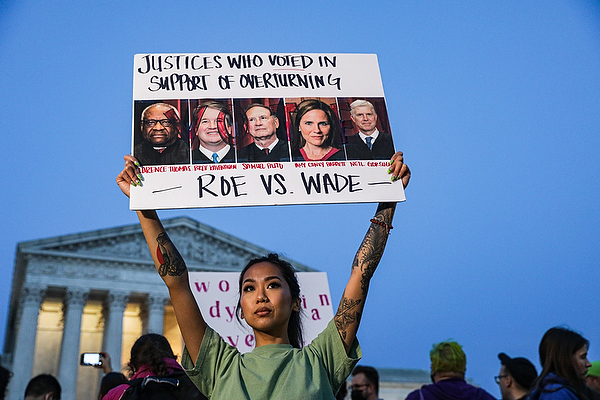 JUSTICES WHO VOTED IN
SUPPORT OF OVERTURNING
THOMAS BRETT KAVANAUGH SAMUEL ALITO AMY CONEY BARRETT NEIL GORSUCH
— ROE VS. WADE —